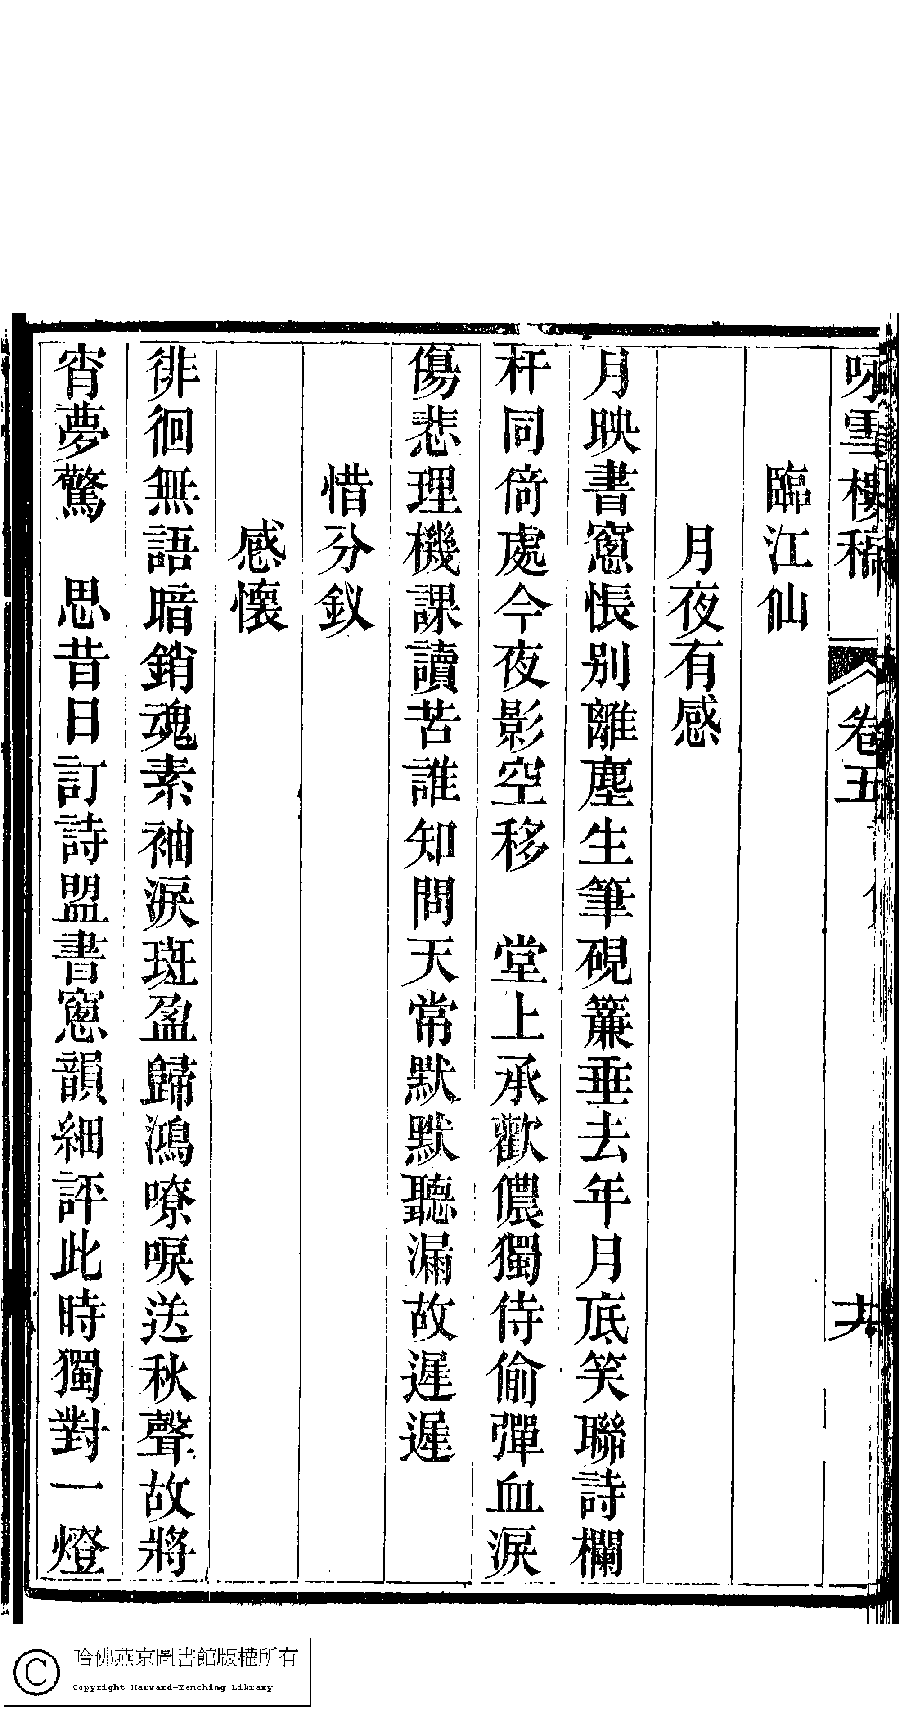 咏雪樓稿 卷五 六
臨江仙
月夜有感
月映書窻悵别離塵生筆硯簾垂去年月底笑聯詩欄
杆同倚處今夜影空移 堂上承歡儂獨侍偷彈血淚
傷悲理機課讀苦誰知問天常默默聽漏故遲遲
惜分釵
感懷
徘徊無語暗銷魂素袖淚斑盈歸鴻嘹唳送秋聲故將
宵夢驚 思昔日訂詩盟書窻韻細評此時獨對一燈
哈佛燕京圖書館版權所有
Copyright Harvard-Yenching Library